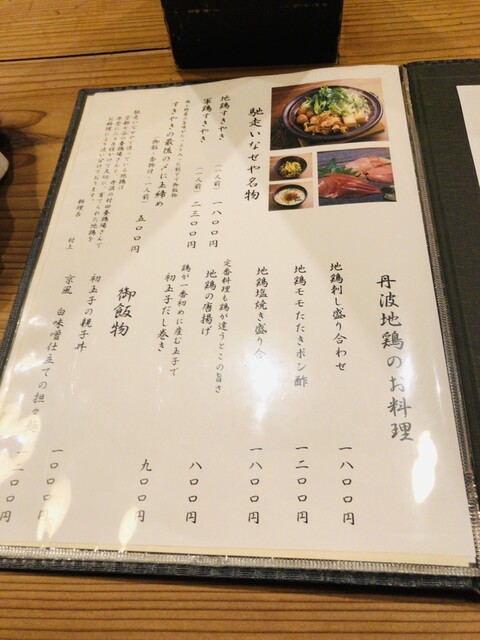 丹波地鶏のお料理
地鶏刺し盛り合わせ 一八〇〇円
地鶏モモたたきポン酢 一二〇〇円
地鶏塩焼き盛り合 一八〇〇円
定番料理も鶏が違うとこの旨さ
地鶏の唐揚げ 八〇〇円
鶏が一番初めに産む玉子で
初玉子だし巻き 九〇〇円
御飯物
初玉子の親子丼 一〇〇〇円
京風 白味噌仕立ての担々 一二〇〇円
馳走いなせや名物
地鶏すきやき (一人前) 一八〇〇円
軍鶏すきやき (一人前) 二三〇〇円
すきやきの最後の〆に玉締め
(御飯・香物付、一人前) 五〇〇円
馳走いなせやで使っている地鶏は
料理長 村上